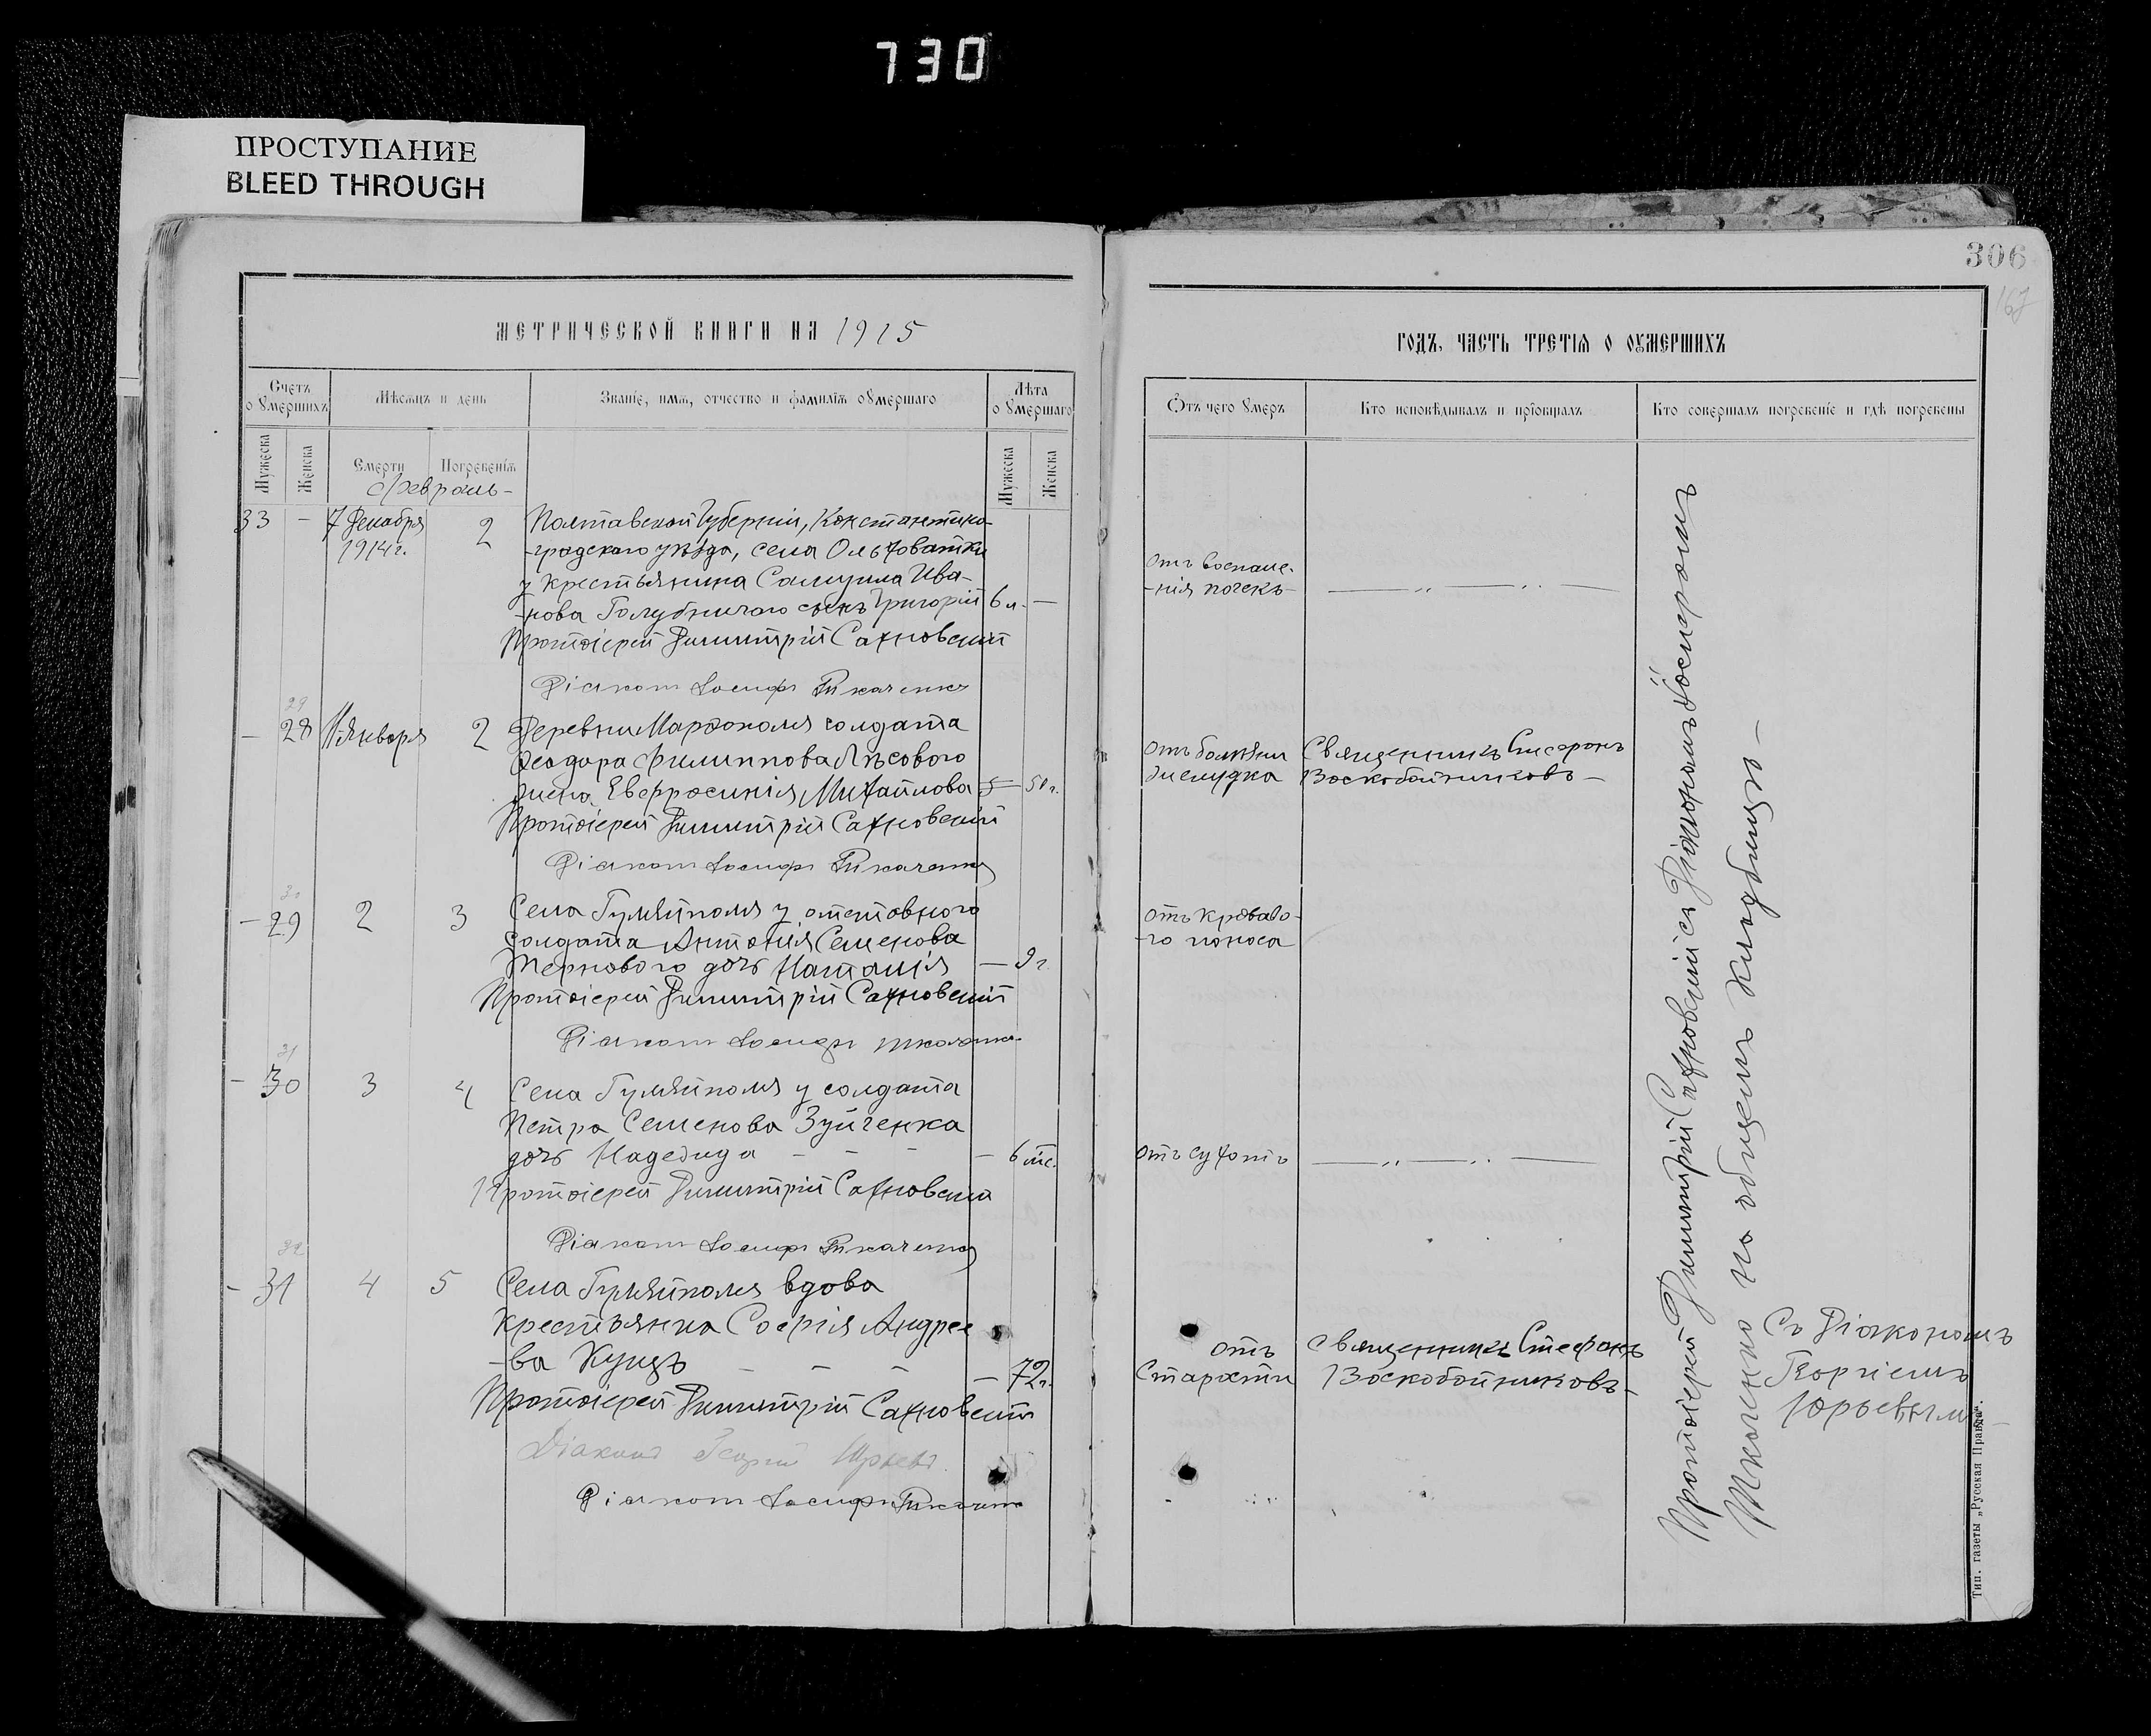 730
ПРОСТУПАНИЕ
BLEED THROUGH
306
167
МЕТРИЧЕСКОЙ КНИГИ НА 1915
ГОДЪ, ЧАСТЬ ТРЕТІѦ О ОУМЕРШИХЪ
Счетъ о умершихъ
Мѣсяцъ и день
Званіе, имя, отчество и фамилія оумершаго
Лѣта о умершаго
Отъ чего умеръ
Кто исповѣдывалъ и пріобщалъ
Кто совершалъ погребеніе и гдѣ погребены
Мужеска
Женска
Смерти
Погребенія
Мужеска
Женска
Февраль-
33 - 7 Декабря 2 Полтавской Губерніи, Константино-
1914 г. -градскаго уѣзда, села Ольховатки
у крестьянина Самуила Ива-
-нова Голубничаго сынъ Григорій 6 л. —
отъ воспале-
-нія почекъ — „ — „ —
Протоіерей Димитрій Сахновскій
Діаконъ Іосифъ Ткаченко
29
— 28 11 января 2 Деревни Марфополя солдата
Ѳеодора Филиппова Лѣсового
жена Евфросинія Михайлова — 50 г.
отъ болѣзни Священникъ Стефанъ
желудка Воскобойниковъ —
Протоіерей Димитрій Сахновскій
Діаконъ Іосифъ Ткаченко
30
— 29 2 3 Села Гуляйполя у отставного
солдата Антонія Семенова
Тернового дочь Наталія — 9 г.
отъ кроваво-
-го поноса
Протоіерей Димитрій Сахновскій
Діаконъ Іосифъ Ткаченко
31
— 30 3 4 Села Гуляйполя у солдата
Петра Семенова Зуйченка
дочь Надежда — — — — 6 мѣс.
отъ сухотъ — „ — „ —
Протоіерей Димитрій Сахновскій
Діаконъ Іосифъ Ткаченко
32
— 31 4 5 Села Гуляйполя вдова
крестьянка Софія Андрее-
-ва Куцъ — — — — 72 г.
отъ Священникъ Стефанъ
старости Воскобойниковъ —
Протоіерей Димитрій Сахновскій
Діаконъ Георгій Юрьевъ
Діаконъ Іосифъ Ткаченко
Протоіерей Димитрій Сахновскій съ Діакономъ Іосифомъ
Ткаченко на общемъ кладбищѣ —
Съ Діакономъ
Георгіемъ
Юрьевымъ —
Тип. газеты „Русская Правда“.